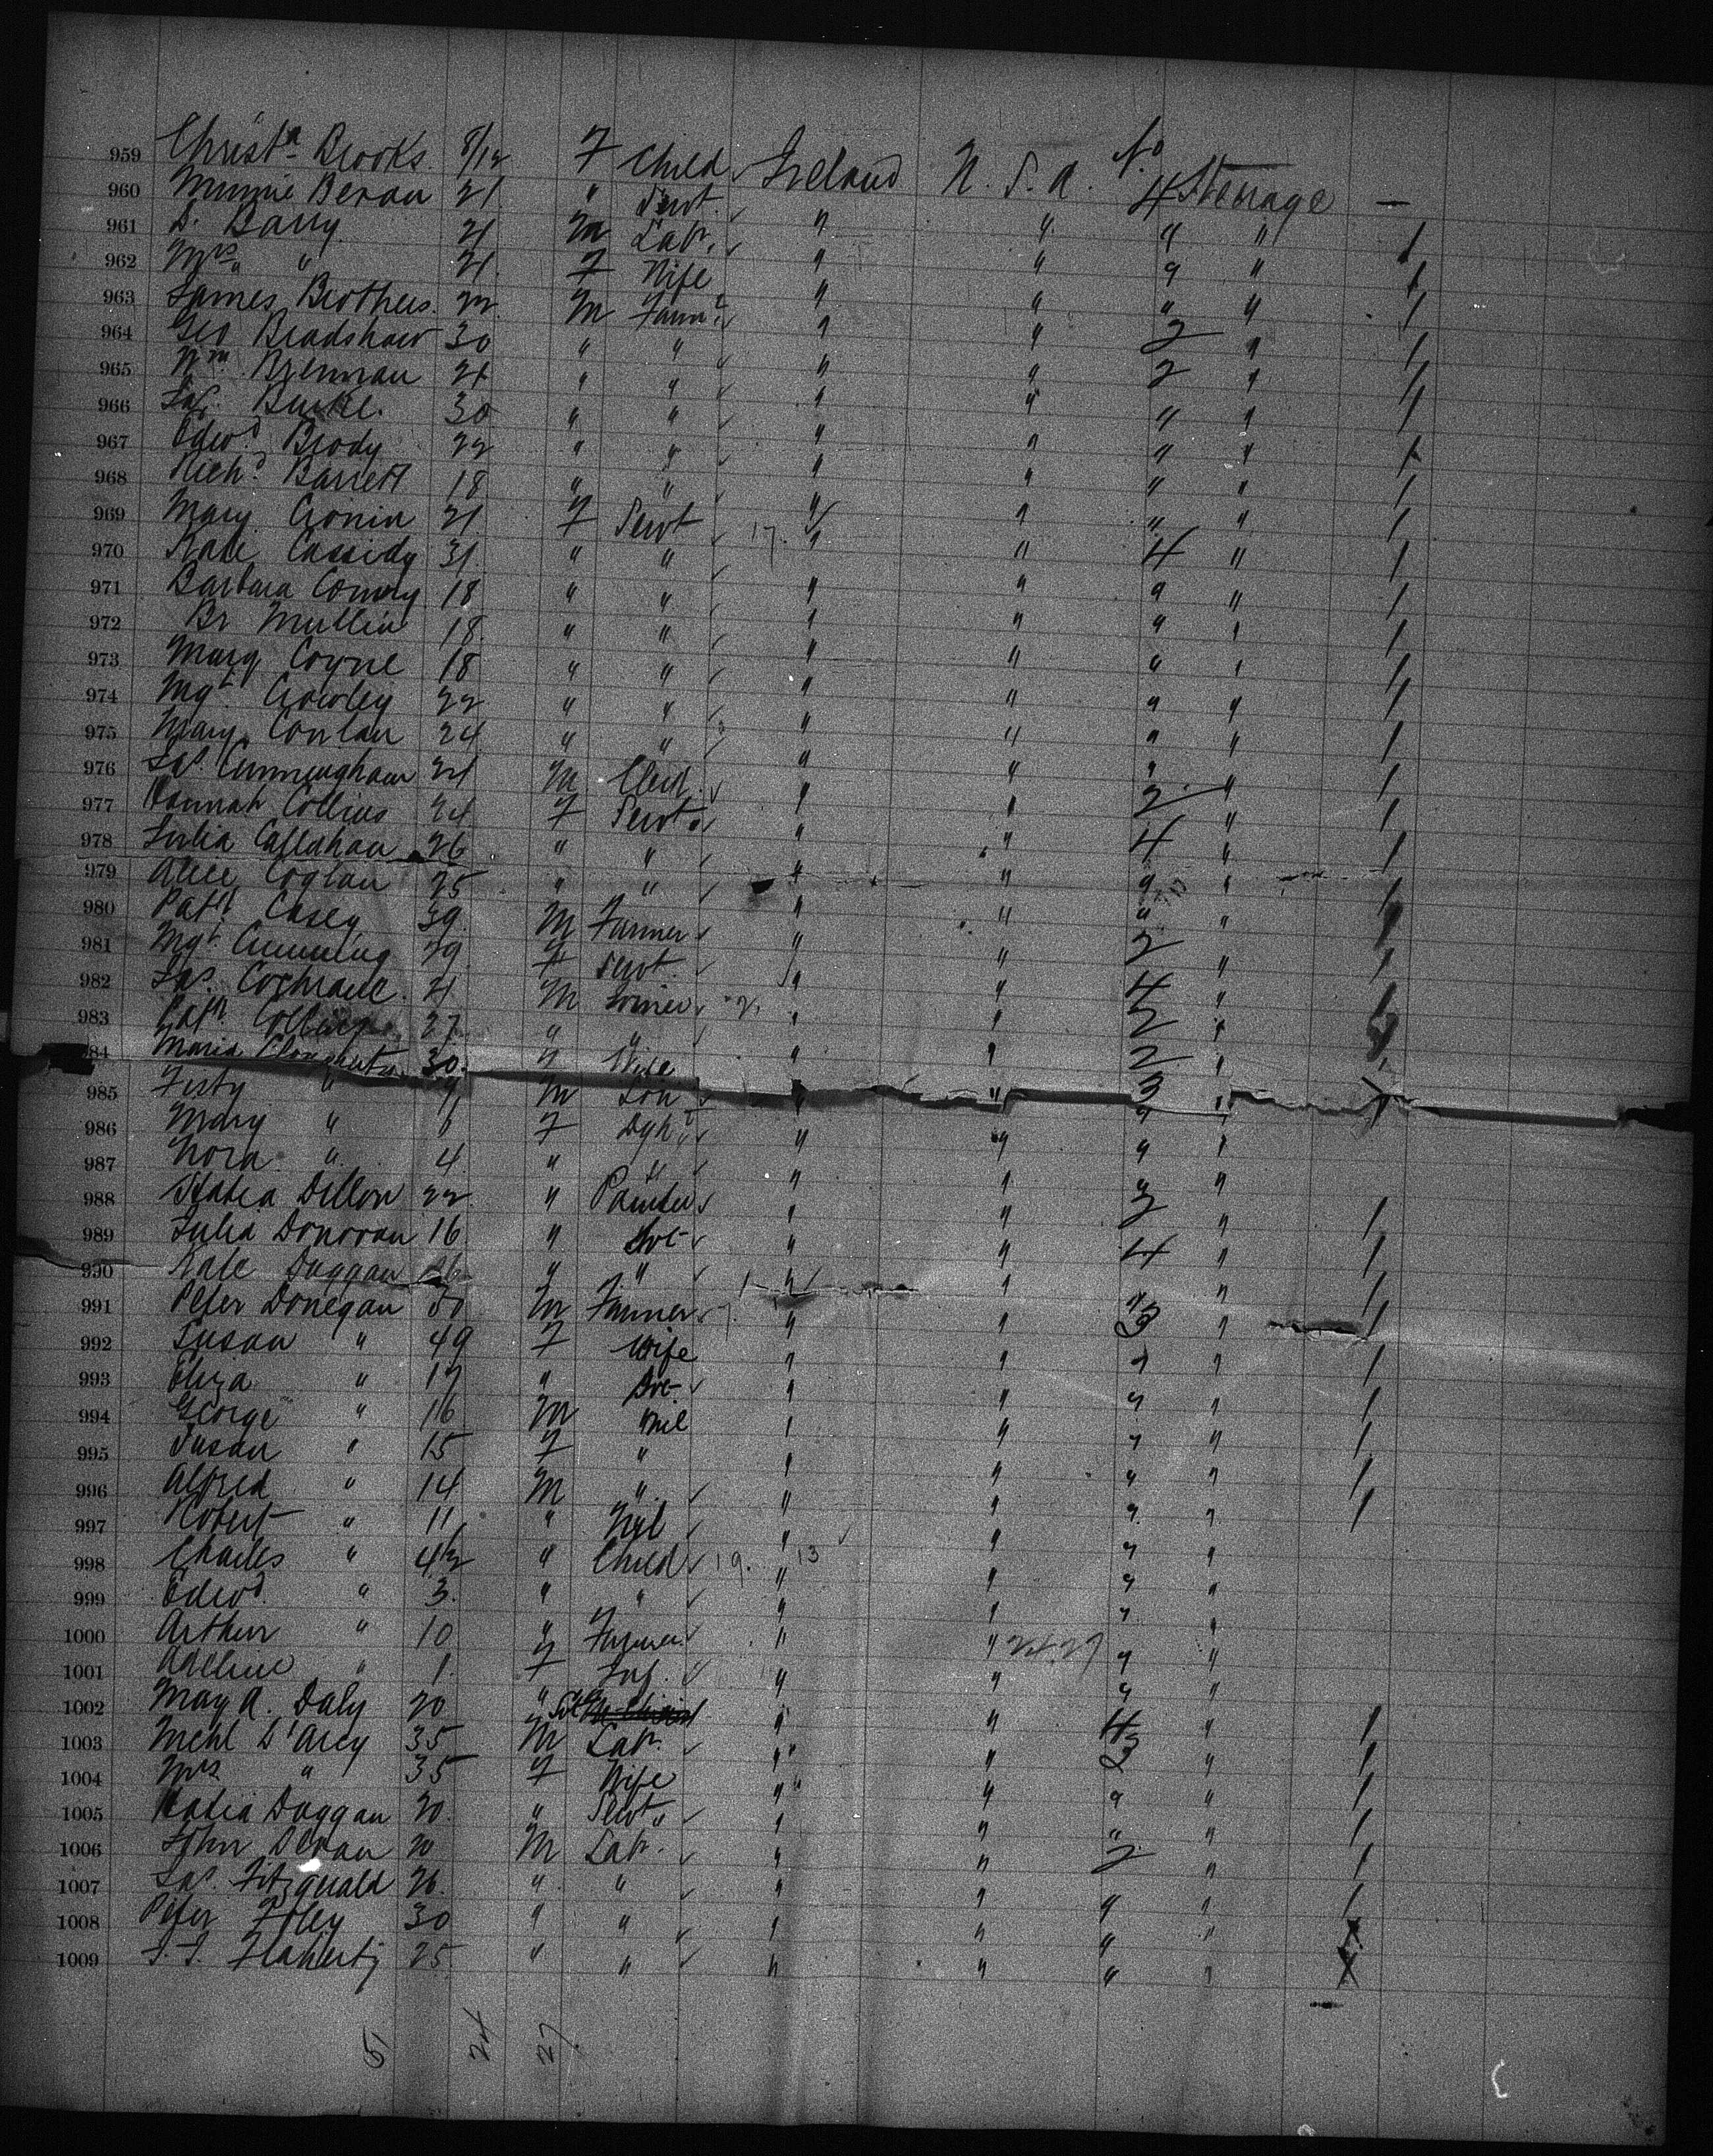 959 Christa Brooks 8/12 F Child Ireland U.S.A. No 4 Steerage —
960 Minnie Beran 21 " Servt. " " " "
961 D. Barry 21 M Labr. " " " "
962 Mrs " 21 F Wife " " " "
963 James Brothers 22 M Farmr " " 2 "
964 Geo Bradshaw 30 " " " " 2 "
965 Wm Brennan 21 " " " " " "
966 Jas. Burke 30 " " " " " "
967 Edwd. Brody 22 " " " " " "
968 Richd. Barrett 18 " " " " " "
969 Mary Cronin 21 F Servt 17 " " 4 "
970 Kate Cassidy 31 " " " " " "
971 Barbara Conroy 18 " " " " " "
972 Br Mullin 18 " " " " " "
973 Marg Coyne 18 " " " " " "
974 Mgt. Crowley 22 " " " " " "
975 Mary Conlan 24 " " " " " "
976 Jas. Cunningham 21 M " " 2 "
977 Hannah Collins 24 F Servt. " " 4 "
978 Julia Callahan 26 " " " " " "
979 Alice Coglan 25 " " " " " "
980 Patk Casey 39 M Farmer " " 2 "
981 Mgt. Cumming 29 F Servt. " " 4 "
982 Jas. Cochrane 21 M " " 2 "
983 Patk 27 " " " " 2 "
984 Maria 30 F Wife " " 3 "
985 Festy " M Son " " " "
986 Mary " F Dghr " " " "
987 Nora " 4 " " " " " "
988 Statia Dillon 22 " " " 2 "
989 Julia Donovan 16 " Svt " " 4 "
990 Kate Duggan " " " " " "
991 Peter Donegan 50 M Farmer " " 3 "
992 Susan " 49 F Wife " " " "
993 Eliza " 17 " Svt " " " "
994 George " 16 M Nil " " " "
995 Susan " 15 F " " " " "
996 Alfred " 14 M " " " " "
997 Robert " 11 " Nil " " " "
998 Charles " 4 1/2 " Child 19. 13 " " " "
999 Edwd " 3 " " " " " "
1000 Arthur " 10 " Farmer " " 24.27 " "
1001 Adeline " 1 F Inf. " " " "
1002 May A. Daly 20 " " " 4 "
1003 Mchl D'Arcy 35 M Labr. " " 3 "
1004 Mrs " 35 F Wife " " " "
1005 Katia Duggan 20 " Servt. " " " "
1006 John Devan 20 M Labr. " " 2 "
1007 Jas. Fitzgerald 26 " " " " " "
1008 Peter Foley 30 " " " " " " X
1009 J.J. Flaherty 25 " " " " " " X
51 24 27